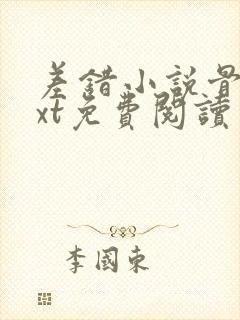 差錯小説最
xt免費閱讀
李國東